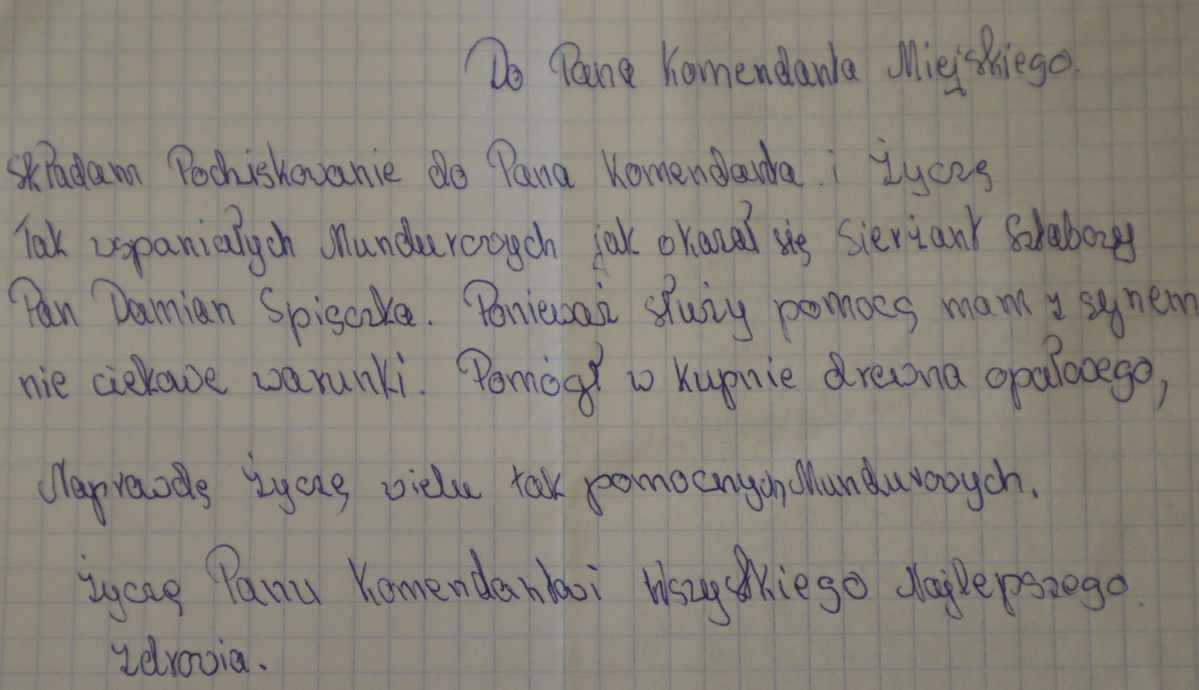 Do Pana Komendanta Miejskiego.
Składam Podziskowanie do Pana Komendanta i życzę
Tak wspaniałych Mundurowych jak okazał się Sierżant Sztabowy
Pan Damian Spięczka. Ponieważ służy pomocą mam z synem
nie ciekawe warunki. Pomógł w kupnie drewna opałowego,
Naprawdę życzę wielu tak pomocnych Mundurowych.
życzę Panu Komendantowi Wszystkiego Najlepszego.
zdrowia.